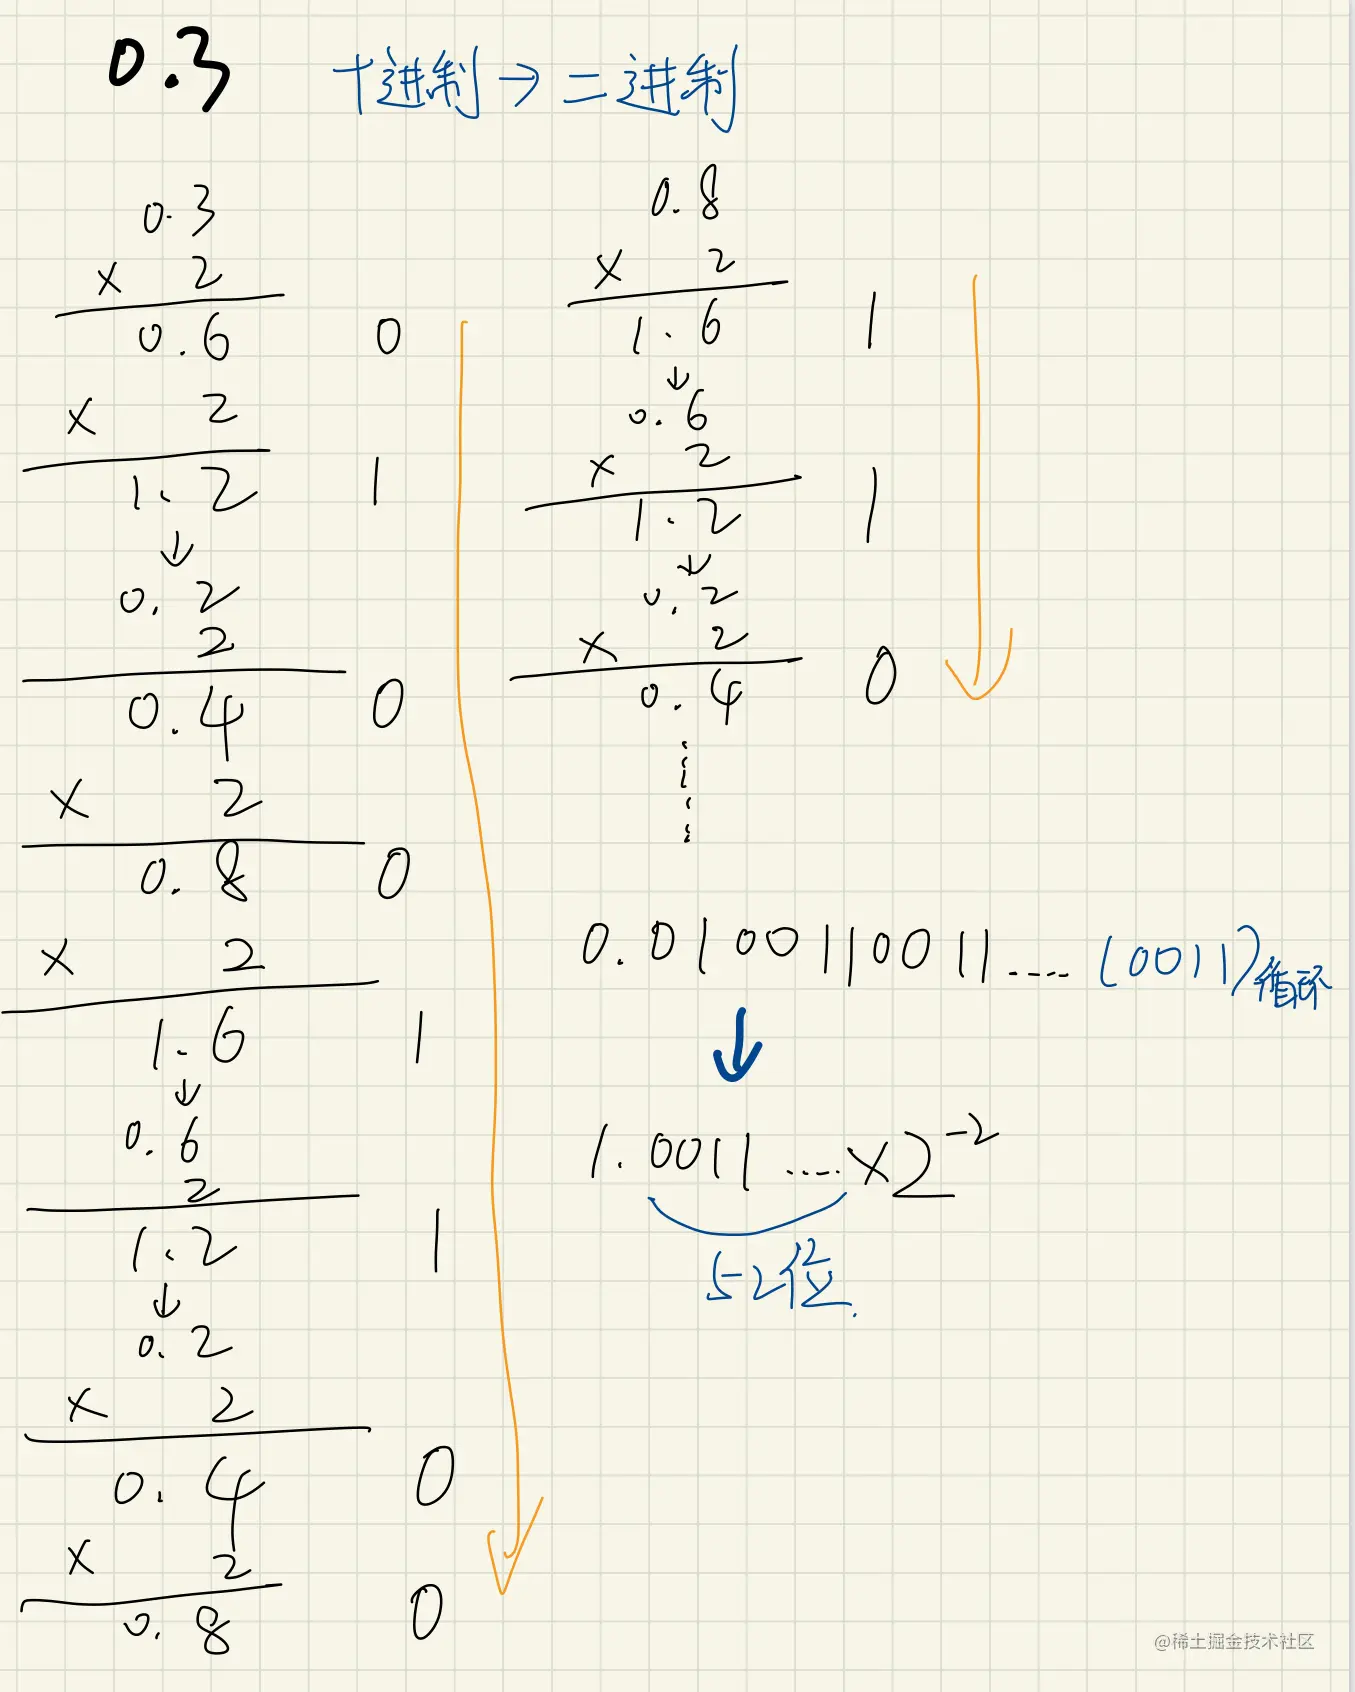 0.3 十进制→二进制
0.3
× 2
0.6 0
× 2
1.2 1
↓
0.2
2
0.4 0
× 2
0.8 0
× 2
1.6 1
↓
0.6
2
1.2 1
↓
0.2
× 2
0.4 0
× 2
0.8 0
0.8
× 2
1.6 1
↓
0.6
× 2
1.2 1
↓
0.2
× 2
0.4 0
0.0100110011..... (0011)循环
↓
1.0011.....×2⁻²
52位.
@稀土掘金技术社区